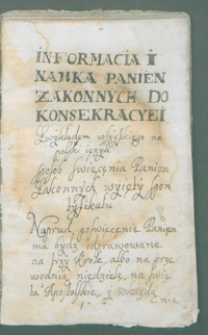 INFORMACIA I
NAUKA PANIEN
ZAKONNYCH DO
KONSEKRACYEI
Z wykładem wszytkiego na
polski ięzyk
sposob święcenia Panien
Zakonnych wzięty z pon
tyfikału
Naprzod poświęcenie Panien
ma bydź odprawowane
na trzy Krole, albo na prze
wodnią niedziele, na świę
ta Apostolskie, y